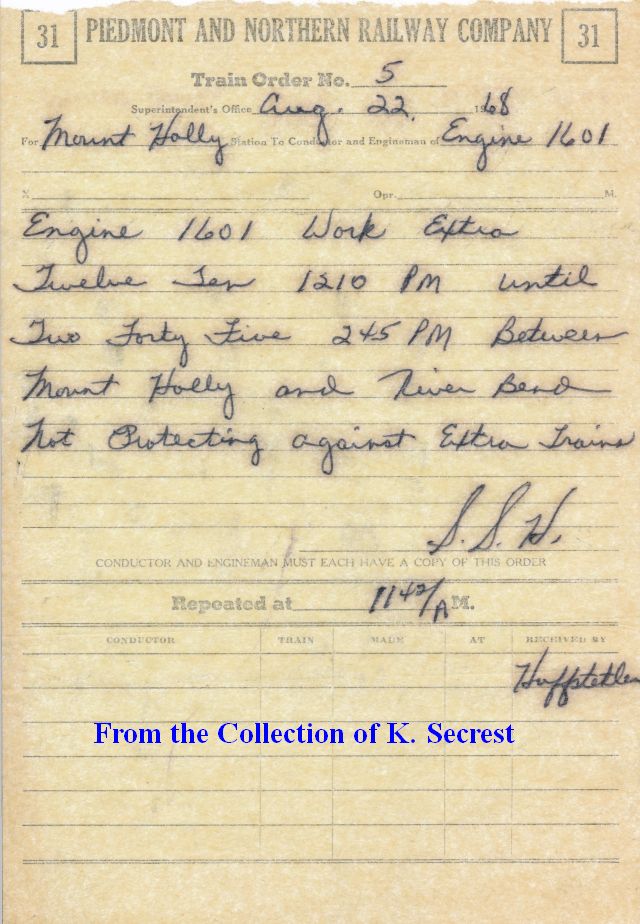 31 PIEDMONT AND NORTHERN RAILWAY COMPANY 31
Train Order No. 5
Superintendent's Office Aug. 22, 1968
For Mount Holly Station To Conductor and Engineman of Engine 1601
X Opr. M.
Engine 1601 Work Extra
Twelve Ten 1210 PM until
Two Forty Five 245 PM Between
Mount Holly and River Bend
Not Protecting against Extra Trains
S. S. H.
CONDUCTOR AND ENGINEMAN MUST EACH HAVE A COPY OF THIS ORDER
Repeated at 1142/A M.
CONDUCTOR TRAIN MADE AT RECEIVED BY
Huffstetler
From the Collection of K. Secrest